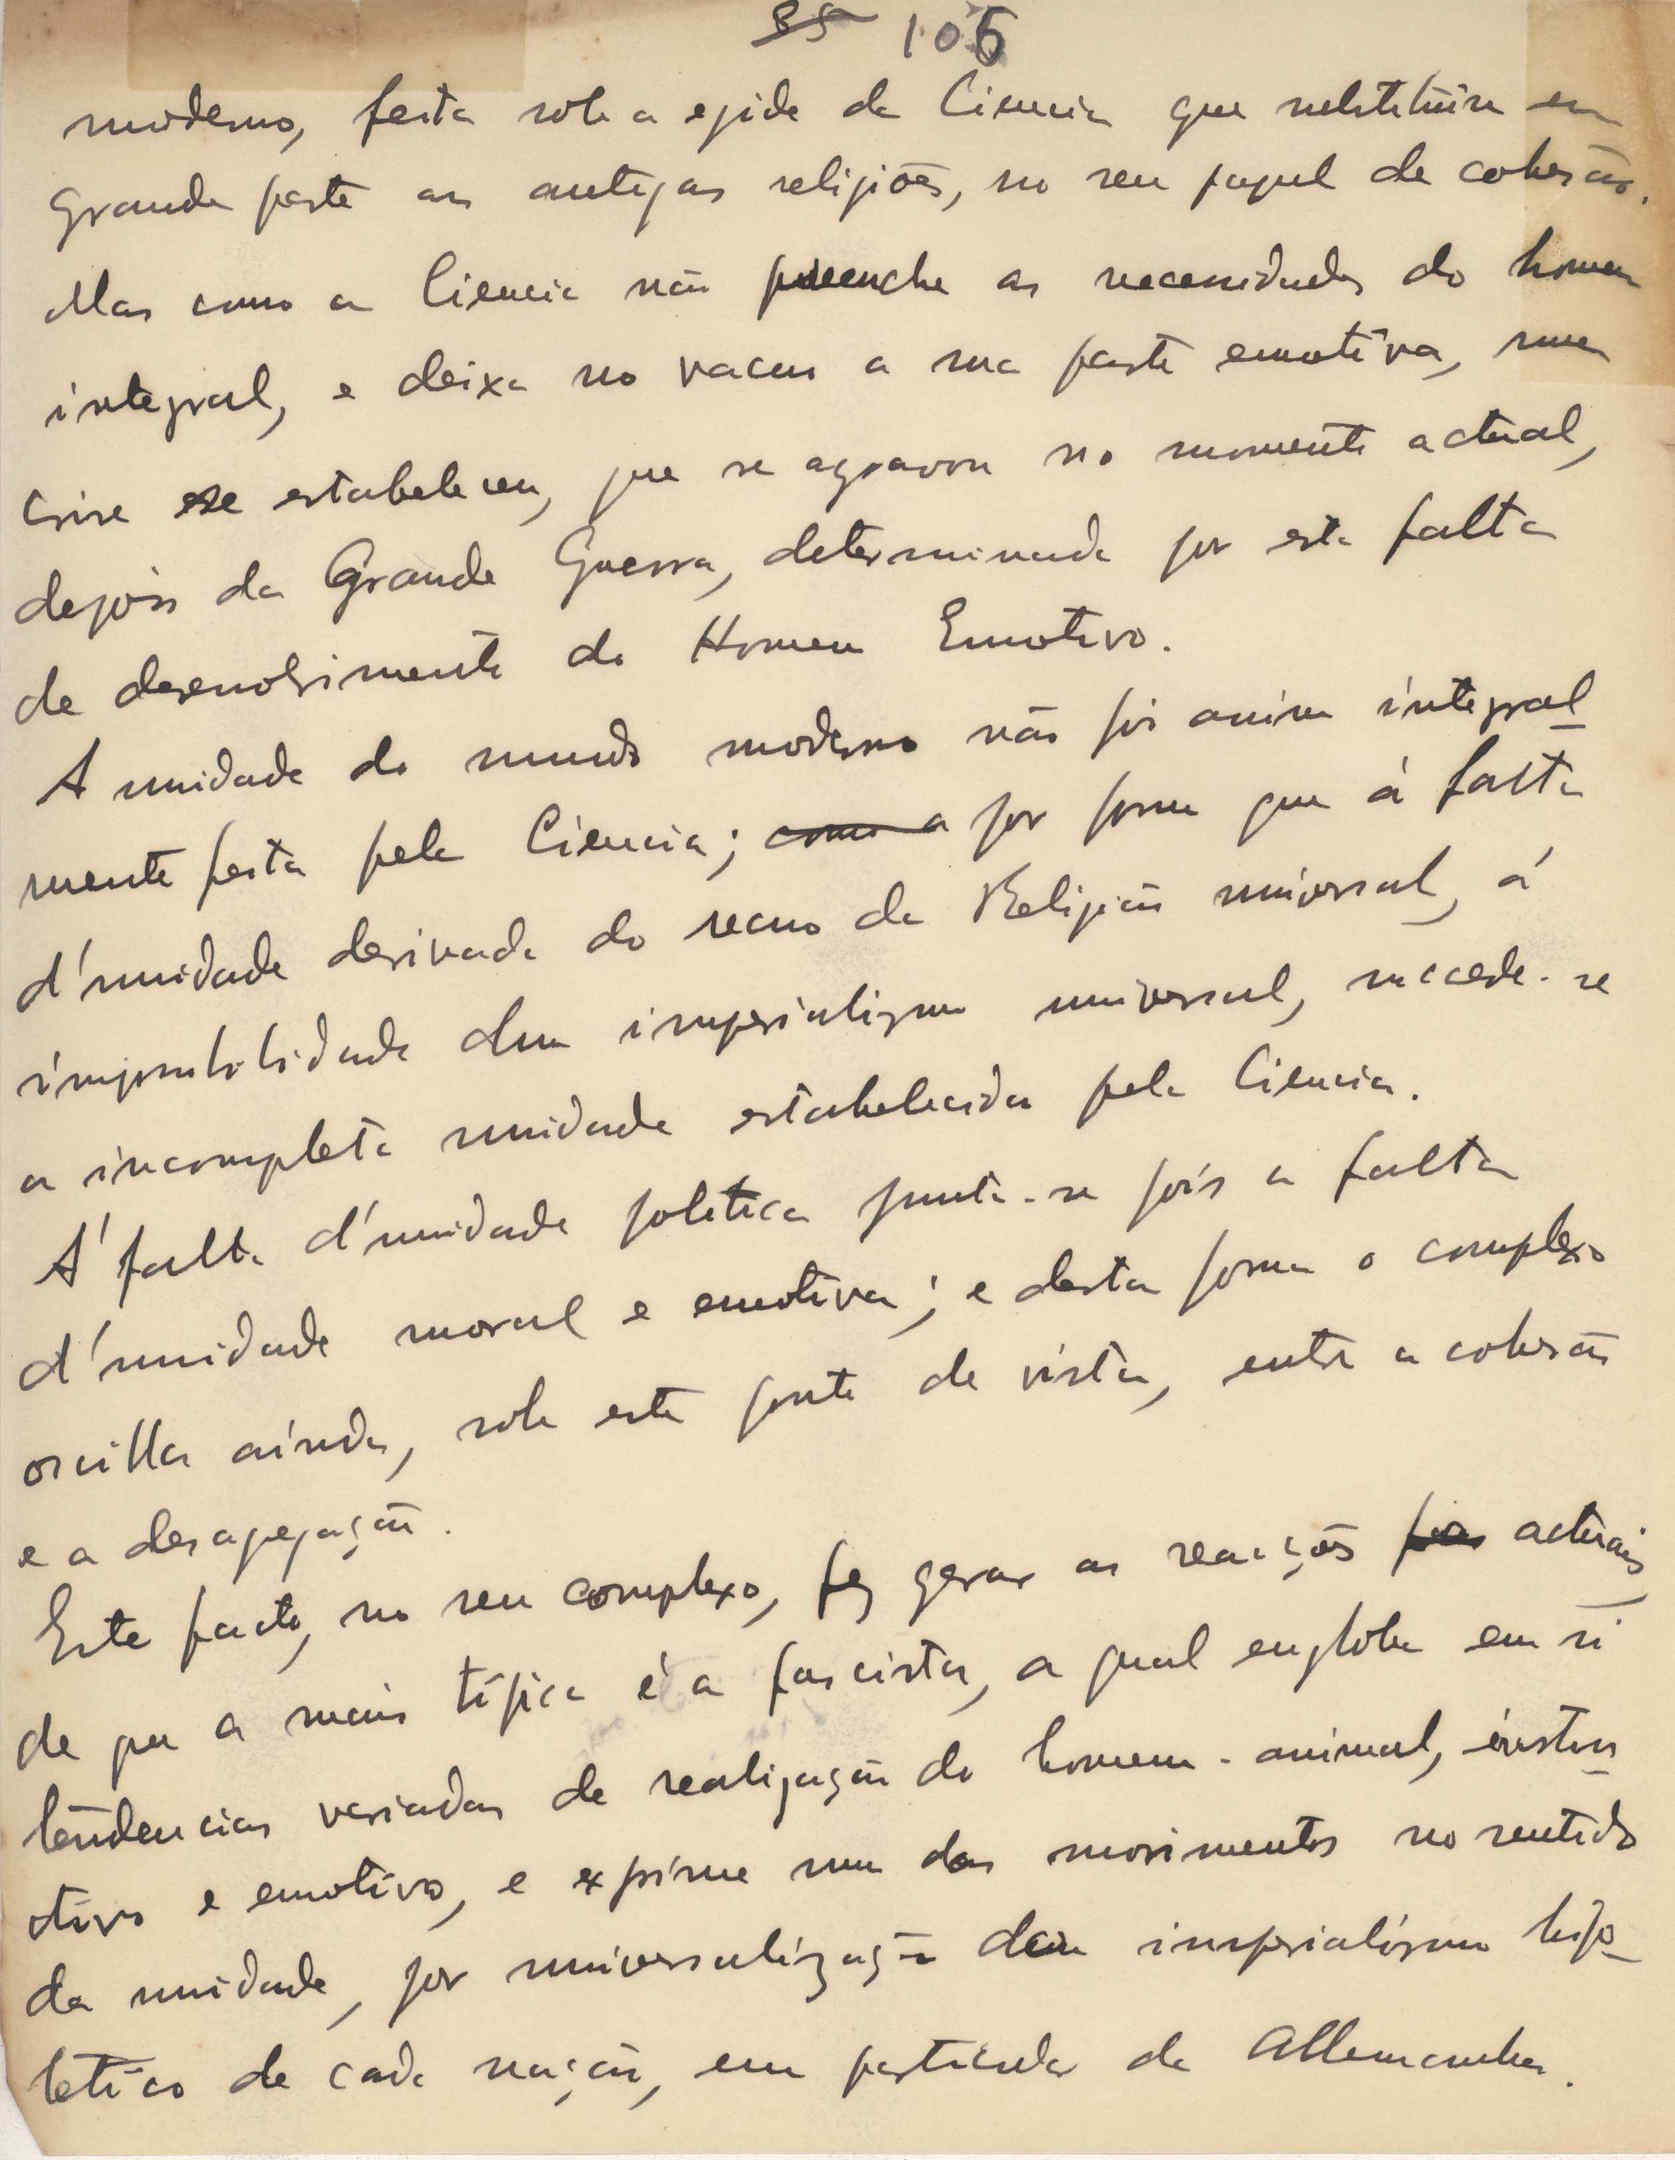 85 106
moderno, feita sob a egide da Ciencia que substituira em
grande parte as antigas religiões, no seu papel de cohesão.
Mas como a Ciencia não preenche as necessidades do homem
integral, e deixa no vacuo a sua parte emotiva, uma
crise se estabeleceu, que se agravou no momento actual,
depois da Grande Guerra, determinada por esta falta
de desenvolvimento do Homem Emotivo.
A unidade do mundo moderno não foi assim integral-
mente feita pela Ciencia; como a por forma que á falta
d'unidade derivada do recuo da Religião universal, á
impossibilidade dum imperialismo universal, succede-se
a incompleta unidade estabelecida pela Ciencia.
A' falta d'unidade politica junta-se pois a falta
d'unidade moral e emotiva; e desta forma o complexo
oscilla ainda, sob este ponto de vista, entre a cohesão
e a desagregação.
Este facto, no seu complexo, fez gerar as reacções actuais,
de que a mais típica é a fascista, a qual engloba em si
tendencias variadas de realização do homem-animal, instin-
tivo e emotivo, e exprime um dos movimentos no sentido
da unidade, por universalização dum imperialismo hipo-
tetico de cada nação, em particular da Allemanha.